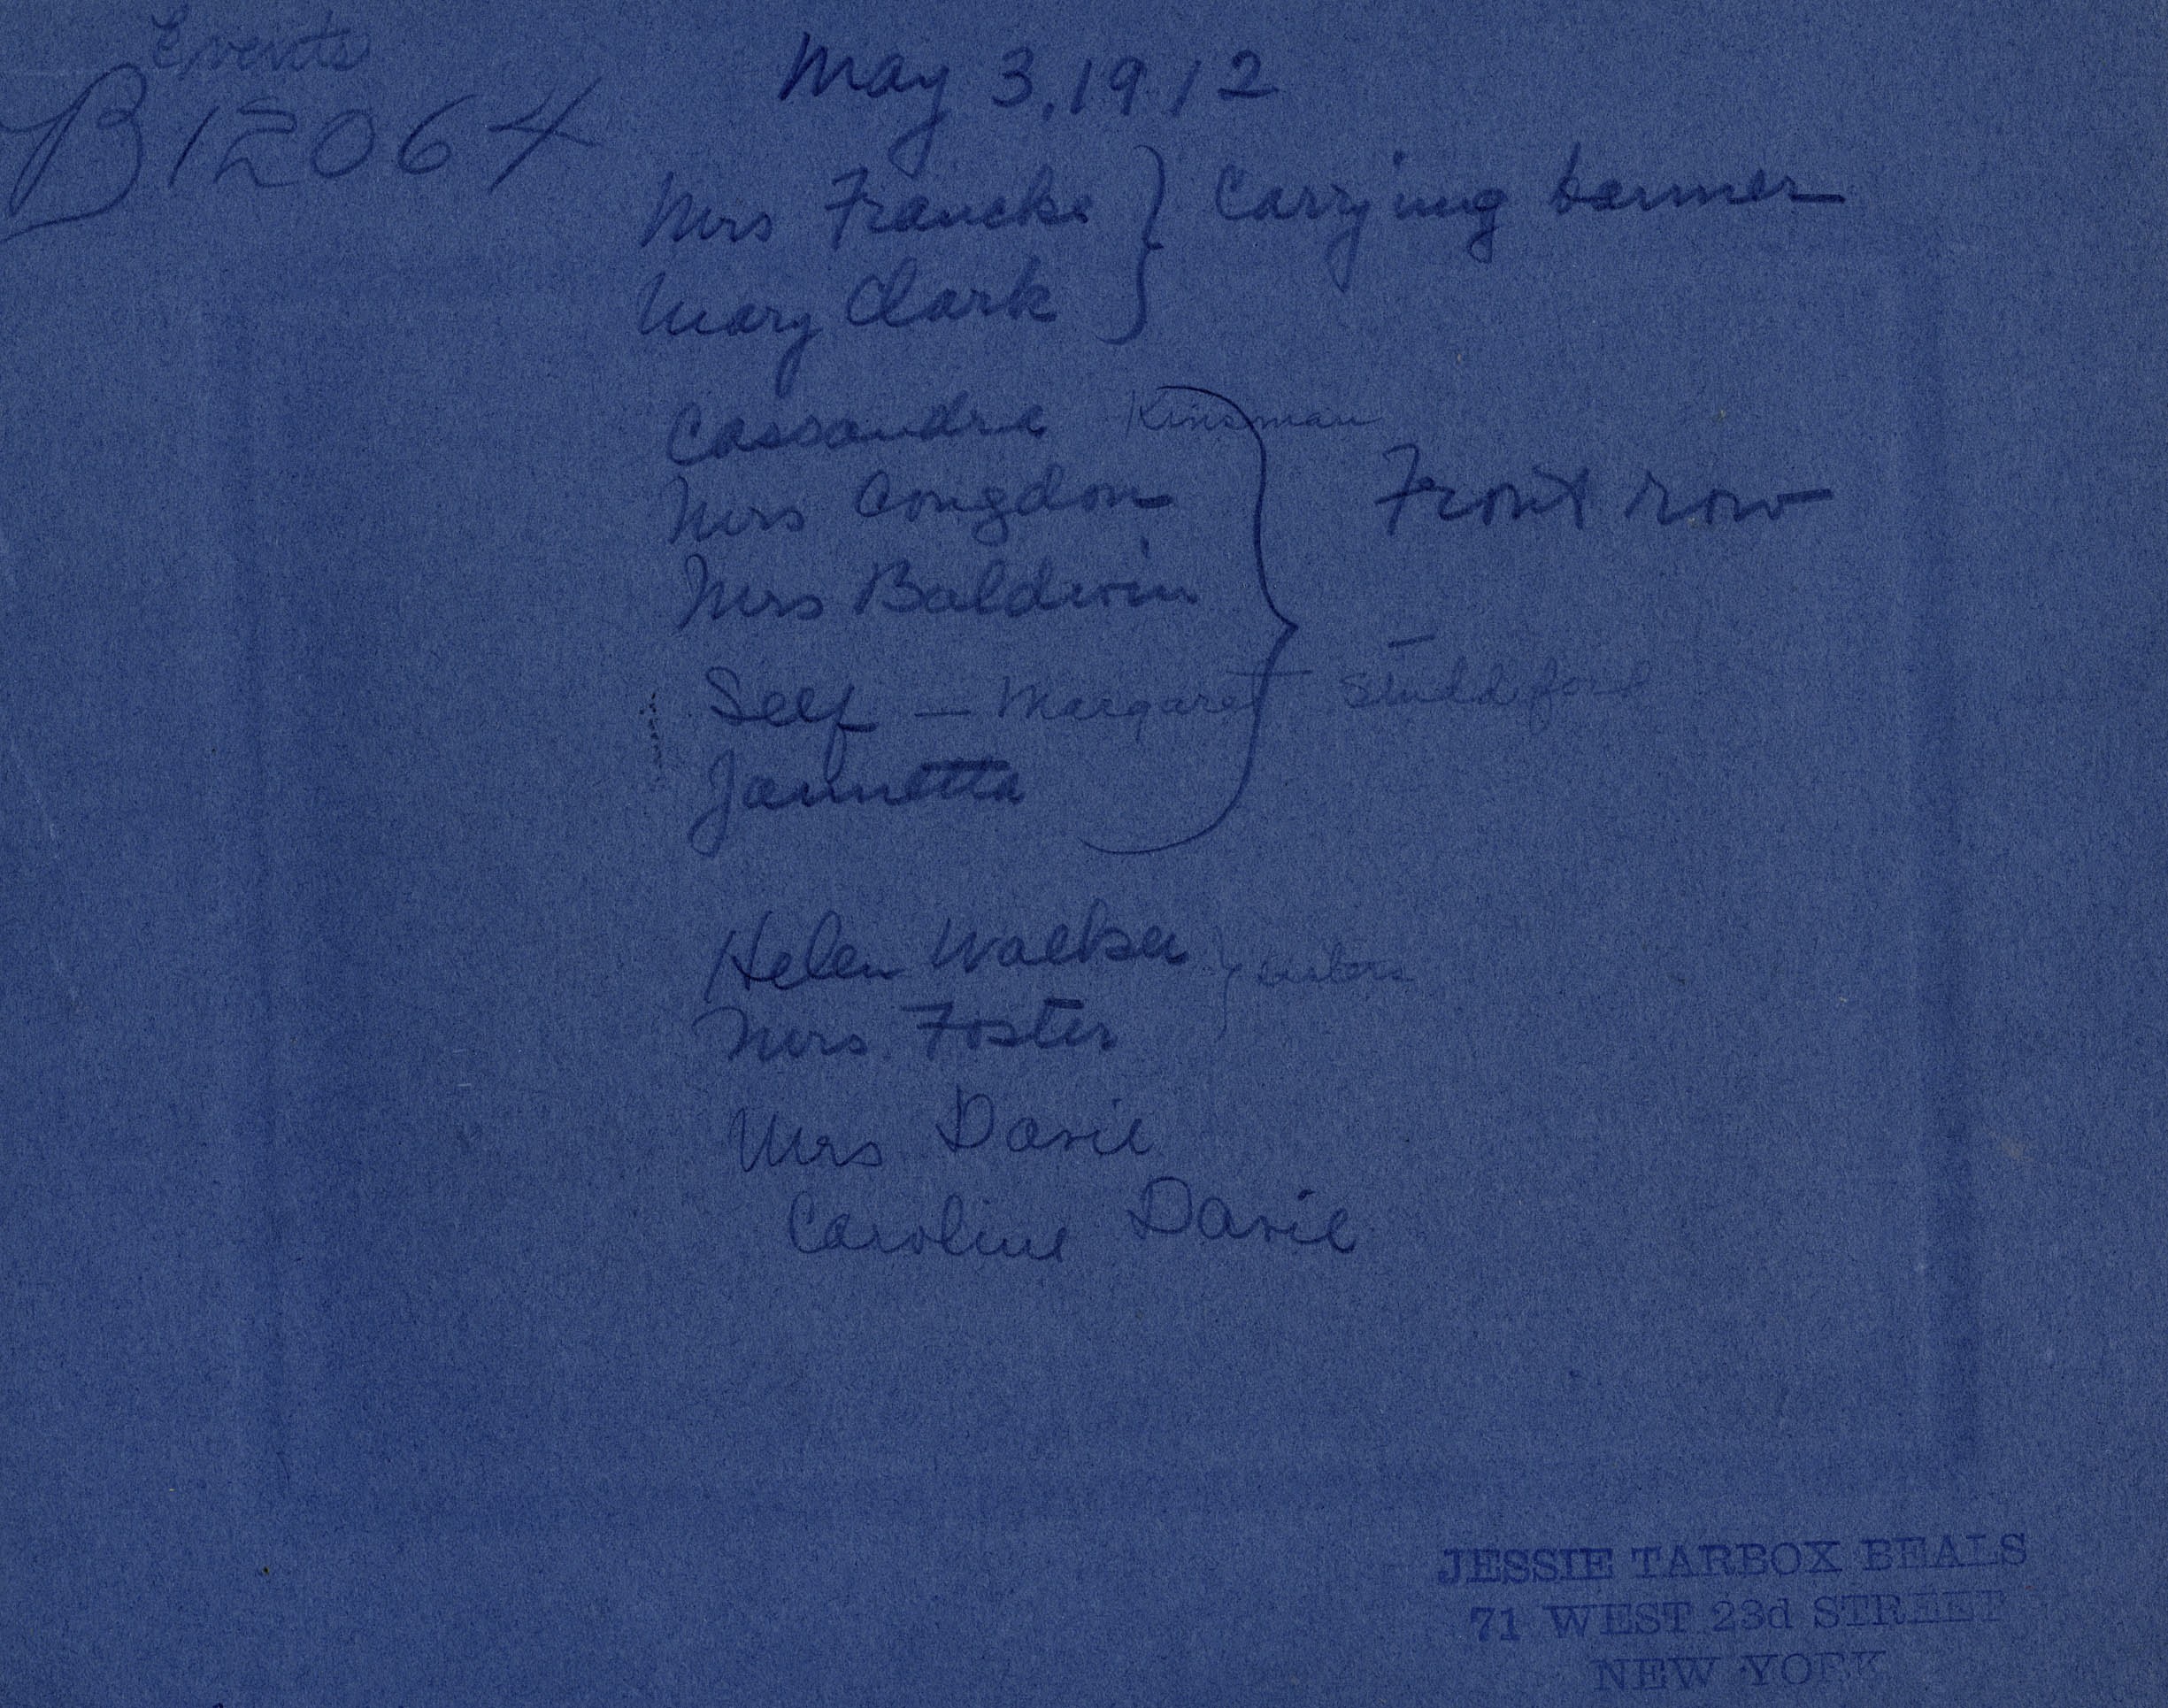 Events
B12064
May 3, 1912
Mrs Francke } Carrying banner
Mary Clark
Cassandra Kinsman
Mrs Congdon
Front row
Mrs Baldwin
Self — Margaret Studdiford
Jannetta
Helen Walker } sisters
Mrs. Foster
Mrs Davie
Caroline Davie
JESSIE TARBOX BEALS
71 WEST 23d STREET
NEW YORK